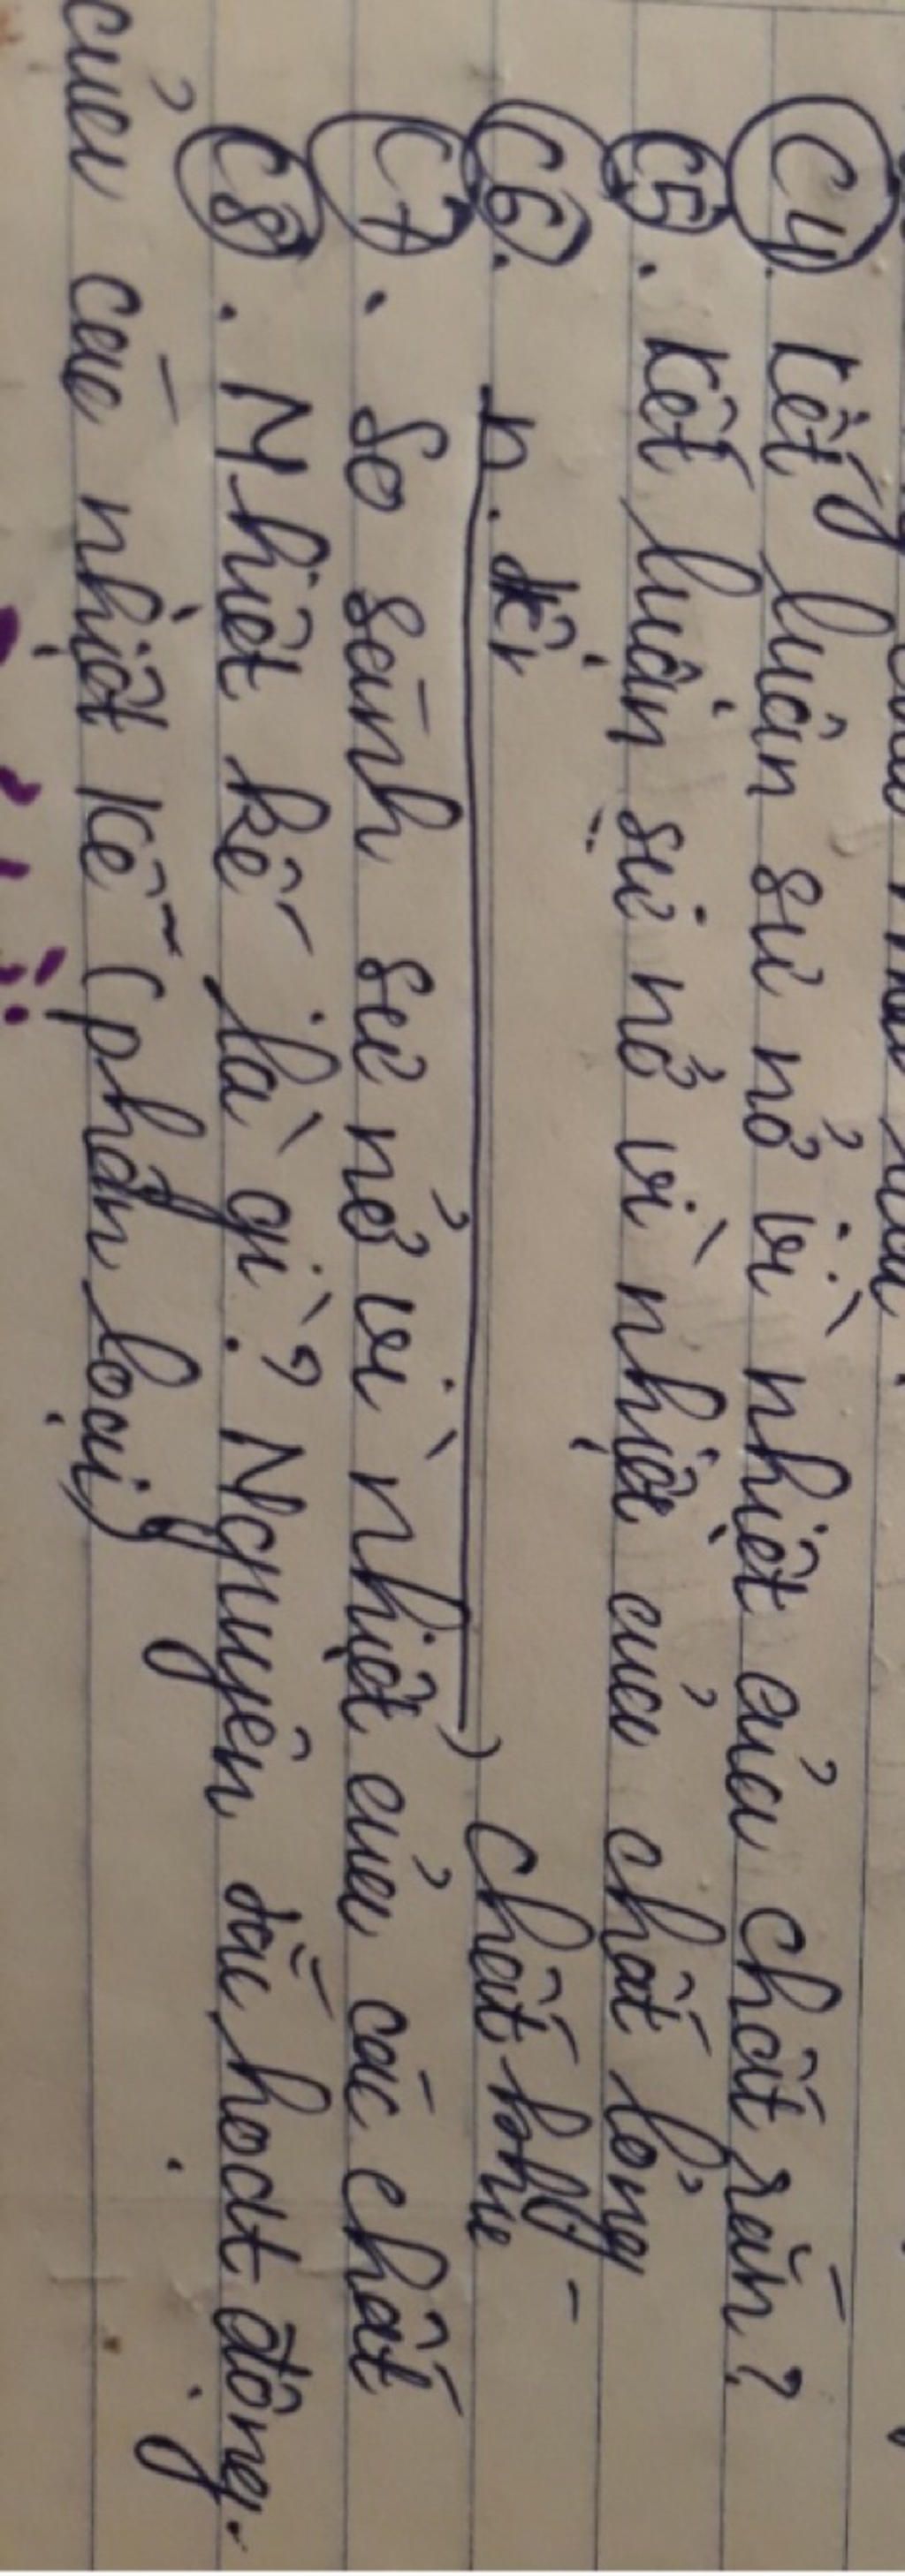 C4. Kết luận sự nở vì nhiệt của chất rắn?
C5. Kết luận sự nở vì nhiệt của chất lỏng
C6. chất
C7. So sánh sự nở vì nhiệt của các chất
C8. Nhiệt kế là gì? Nguyên tắc hoạt động.
của các nhiệt kế (phân loại)